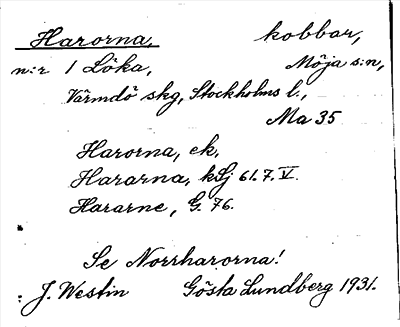 Harorna, kobbar,
n:r 1 Löka, Möja s:n,
Värmdö skg, Stockholms l.,
Ma 35
Harorna, ek.
Hararna, kSj 61.7.V.
Hararne, G. 76.
Se Norrharorna!
J. Westin Gösta Lundberg 1931.